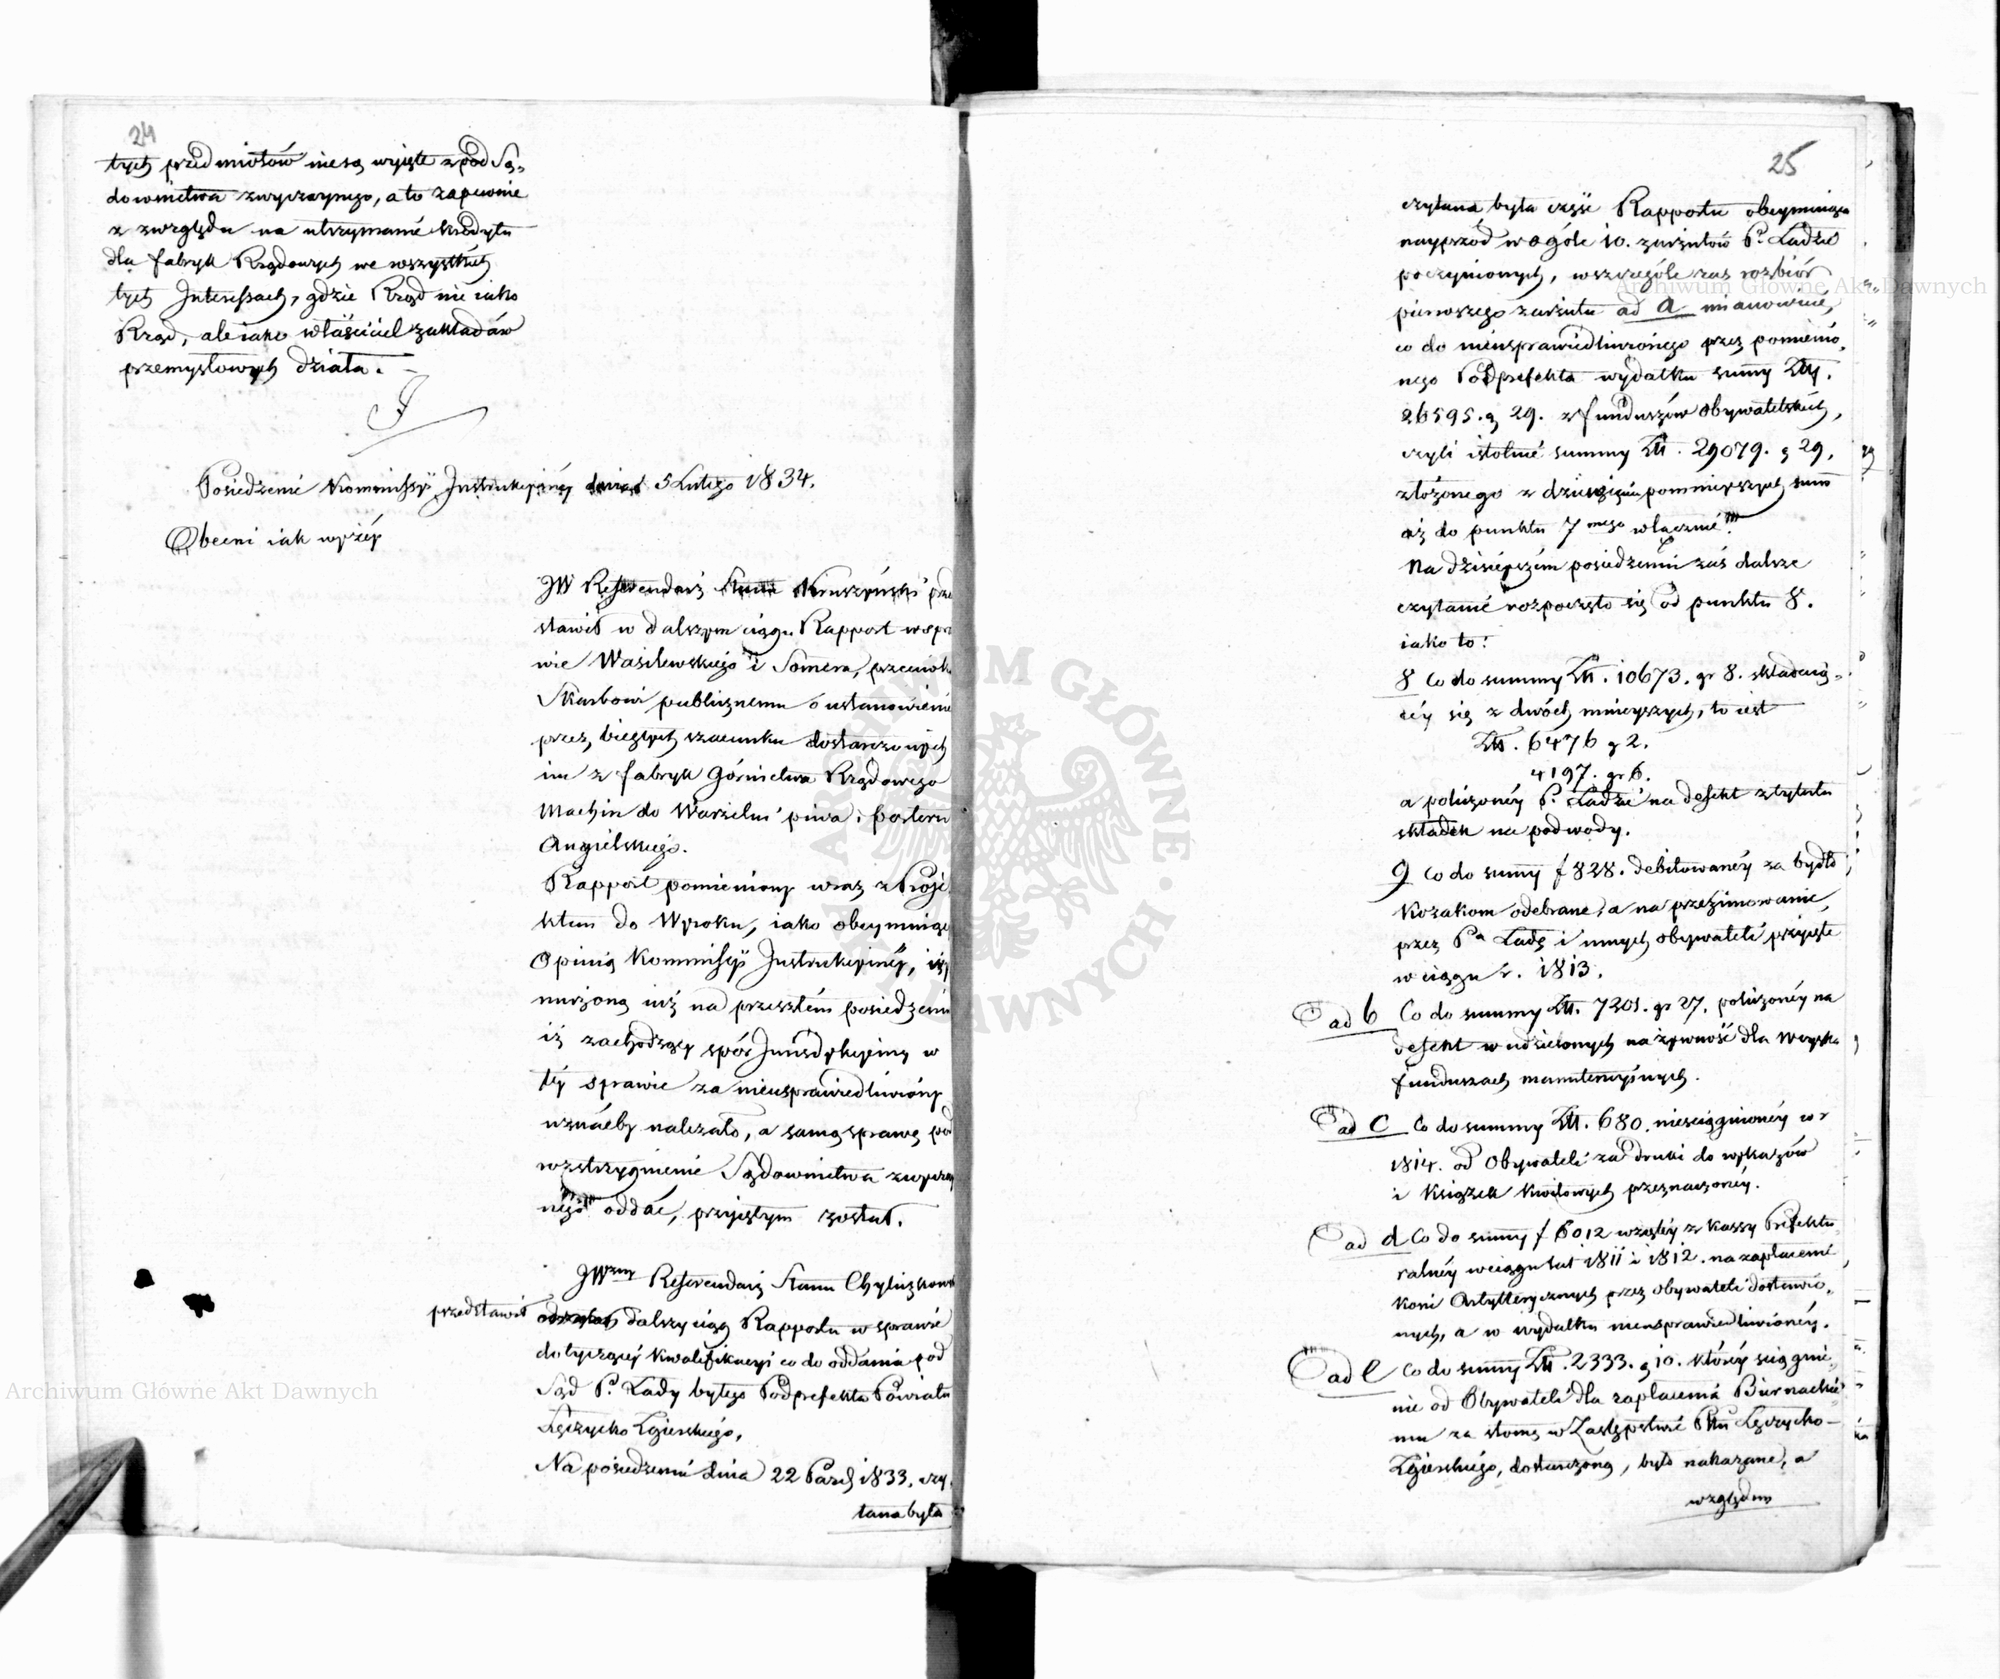 24
tych przedmiotów nie są wyjęte z pod Są-
downictwa zwyczaynego, a to zapewnie
z względu na utrzymanie kredytu
dla fabryk Rządowych we wszystkich
tych Interessach, gdzie Rząd nie iako
Rząd, ale iako właściciel zakładów
przemysłowych działa.
Posiedzenie Kommissyi Instrukcyiney dnia 5 Lutego 1834.
Obecni iak wyżéy
JW Referendarz Stanu przed
stawił w dalszym ciągu Rapport w spra
wie Wasilewskiego i Somera, przeciwko
Skarbowi publicznemu o ustanowienie
przez biegłych szacunku dostarczonych
im z fabryk Górnictwa Rządowego
Machin do Warzelni piwa i porteru
Angielskiego.
Rapport pomieniony wraz z Proje
ktem do Wyroku, iako obeymuiący
Opinią Kommissyi Instrukcyiney,
nurzoną iuż na przeszłém posiedzeniu
iż zachodzący spór Jurisdykcyiny w
téy sprawie za nieusprawiedliwiony
uznáćby należało, a samą sprawę pod
rozstrzygnienie Sądownictwa zwyczay
nego oddać, przyiętym został.
JWzny Referendarz Stanu Chyliczkowski
przedstawił dalszy ciąg Rapportu w sprawie
dotyczącéj kwalifikacyi co do oddania pod
Sąd Pa Łady byłego Podprefekta Powiatu
Łęczycko Zgierskiego,
Na posiedzeniu dnia 22 Paźd 1833, czy-
tana była
25
czytana była część Rapportu obeymuiąca
nayprzód w ogóle 10. zarzutów Pu Ładzie
poczynionych, w szczególe zaś rozbiór
pierwszego zarzutu ad a mianowicie,
co do nieusprawiedliwionego przez pomienio-
nego Podprefekta wydatku summy Złt.
26595. g 29. z funduszów obywatelskich,
czyli istotnie summy Złt. 29079. g 29,
złożonego z dziewięciu pomnieyszych summ
aż do punktu 7mego włącznie.
Na dzisieyszém posiedzeniu zaś dalsze
czytanie rozpoczęto się od punktu 8.
iako to:
8 Co do summy Złt. 10673. gr 8. składaią-
céy się z dwóch mnieyszych, to iest
Złt. 6476 g 2.
4197. gr 6.
a policzonéy Pu Ładzie na defekt z tytułu
składek na podwody.
9 Co do summy f 828. debitowanéy za bydło
Kozakom odebrane, a na przezimowanie,
przez Pa Ładę i innych obywateli przyięte
w ciągu r. 1813.
ad b Co do summy Złt. 7201. gr 27. policzonéy na
defekt w udzielonych na żywność dla Woyska
funduszach manutencyinych.
ad c Co do summy Złt. 680. nieściągnionéy w r
1814. od Obywateli za druki do wykazów
i Książek kwitowych przeznaczonéy.
ad d Co do summy f 6012 wziętéy z Kassy Prefektu-
ralnéy w ciągu lat 1811 i 1812. na zapłacenie
koni Artyllerycznych przez obywateli dostawio-
nych, a w wydatku nieusprawiedliwionéy.
ad e Co do summy Złt. 2333. g 10. któréy ściągnie-
nie od Obywateli dla zapłacenia Biernackie-
mu za słomę w Zastępstwie Pttu Łęczycko-
Zgierskiego, dostarczoną, było nakazane, a
względem